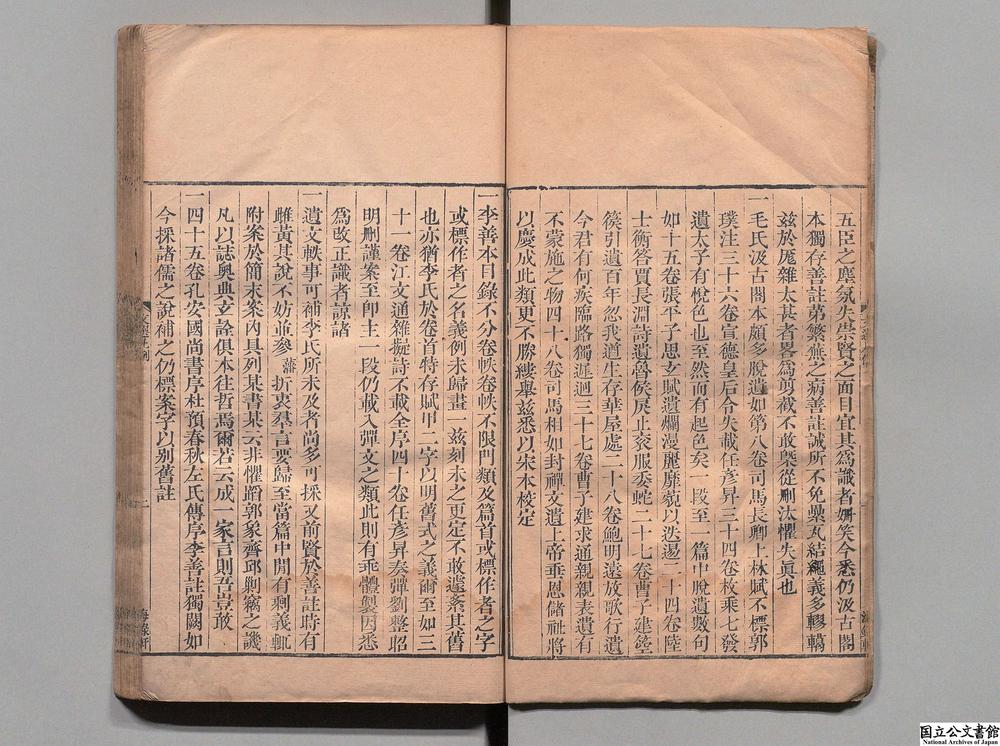 五臣之塵氛失崇賢之面目宜其為識者姍笑今悉仍汲古閣
本獨存善註第繁蕪之病善註誠所不免纍丸結繩義多轇轕
茲於厖雜太甚者畧為剪截不敢槩從刪汰懼失眞也
一毛氏汲古閣本頗多脫遺如第八卷司馬長卿上林賦不標郭
璞注三十六卷宣德皇后令失載任彥昇三十四卷枚乘七發
遺太子有悅色也至然而有起色矣一段至一篇中脫遺數句
如十五卷張平子思玄賦遺爛漫麗靡藐以迭逷二十四卷陸
士衡答賈長淵詩遺魯侯戾止衮服委蛇二十七卷曹子建箜
篌引遺百年忽我遒生存華屋處二十八卷鮑明遠放歌行遺
今君有何疾臨路獨遲迴三十七卷曹子建求通親親表遺有
不蒙施之物四十八卷司馬相如封禪文遺上帝垂恩儲祉將
以慶成此類更不勝縷舉茲悉以宋本挍定
一李善本目錄不分卷帙卷帙不限門類及篇首或標作者之字
或標作者之名義例未歸畫一茲刻未之更定不敢遽紊其舊
也亦猶李氏於卷首特存賦甲二字以明舊式之義爾至如三
十一卷江文通雜擬詩不載全序四十卷任彥昇奏彈劉整昭
明刪謹案至卽主一段仍載入彈文之類此則有乖體製因悉
為改正識者諒諸
一遺文軼事可補李氏所未及者尚多可採又前賢於善註時有
雌黃其說不妨並參藩折衷羣言要歸至當篇中閒有剩義輒
附案於簡末案內具列某書某云非懼蹈郭象齊邱剿竊之譏
凡以誌輿典立詮俱本往哲焉爾若云成一家言則吾豈敢
一四十五卷孔安國尚書序杜預春秋左氏傳序李善註獨闕如
今採諸儒之說補之仍標案字以別舊註
海錄軒
国立公文書館
National Archives of Japan